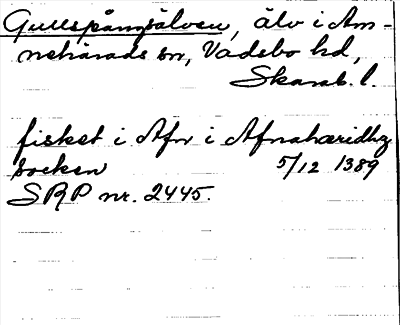 Gullspångsälven, älv i Am-
nehärads sn, Vadsbo hd,
Skarab. l.
fisket i Afn i Afnahæridhz
soeken 5/12 1389
SRP nr. 2445.